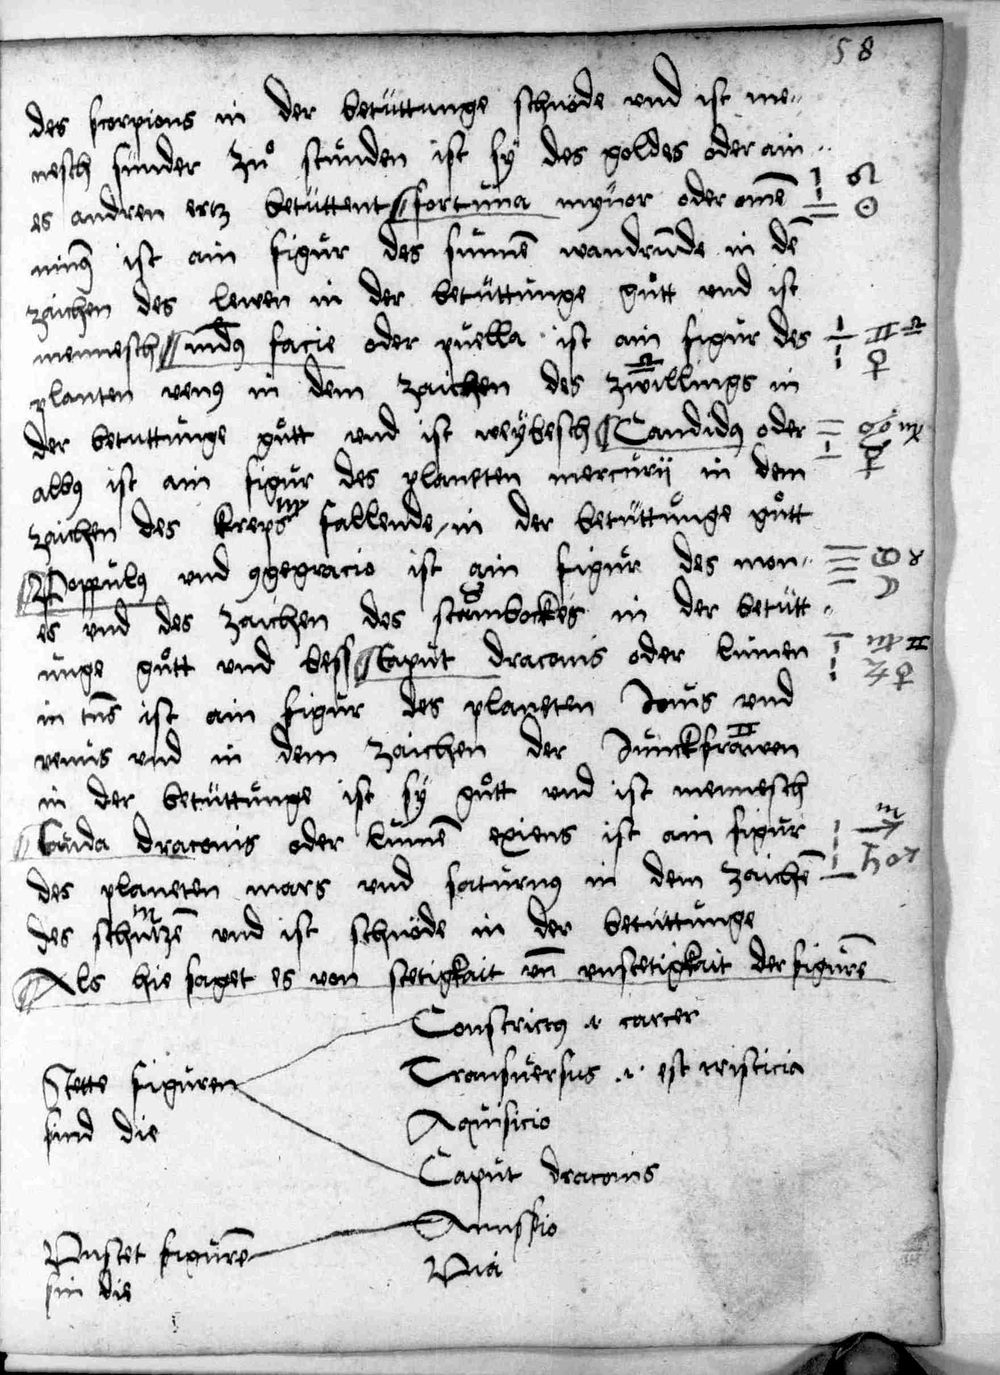 58
des scorpions in der betüttunge schnöde vnd ist me„
nesch sunder zuͦ stunden ist sÿ des goldes oder ain„
es andren ertz betüttent fortuna mynor oder om̄e
ist ain figur des sunnē wandrn̄de in dē
zaichen des lewen in der betüttunge guͦtt vnd ist
mennesch mūdꝯ facie oder puella ist ain figur des
planten venꝯ in dem zaichen des zwillings in ♎
der betuttunge guͦtt vnd ist weÿbesch Candidꝯ oder
albꝯ ist ain figur des planeten mercurii in dem
zaichen des kreps ♍ fallende in der betüttunge guͦtt
Poppulꝯ vnd ꝯgegracio ist ain figur des mon„
es vnd des zaichen des stainbockes in der betütt„
unge guͦtt vnd bess Caput draconis oder lumen
in tn̄s ist ain figur des planeten Jouis vnd
venus vnd in dem zaichen der Junckfrawen ♊
in der betüttunge ist sÿ guͦtt vnd ist mennesch
Cauda draconis oder lumē exiens ist ain figur
des planeten mars vnd saturnꝯ in dem zaichē
des schutzē ♏ vnd ist schnöde in der betuttunge
Als hie saget es von stetigkait vn̄ vnstetigkait der figurē
Stette figuren
sind die
Constrictꝯ .i. carcer
Transuersus .i. est tristicia
Aquisicio
Caput draconis
Vnstet figurē
sin die
Amissio
Via
♌
☉
♊ ♎
♀
♋ ♍
☿
♋ ♉
☽
♍ ♊
♃ ♀
♏
♐
♄ ♂